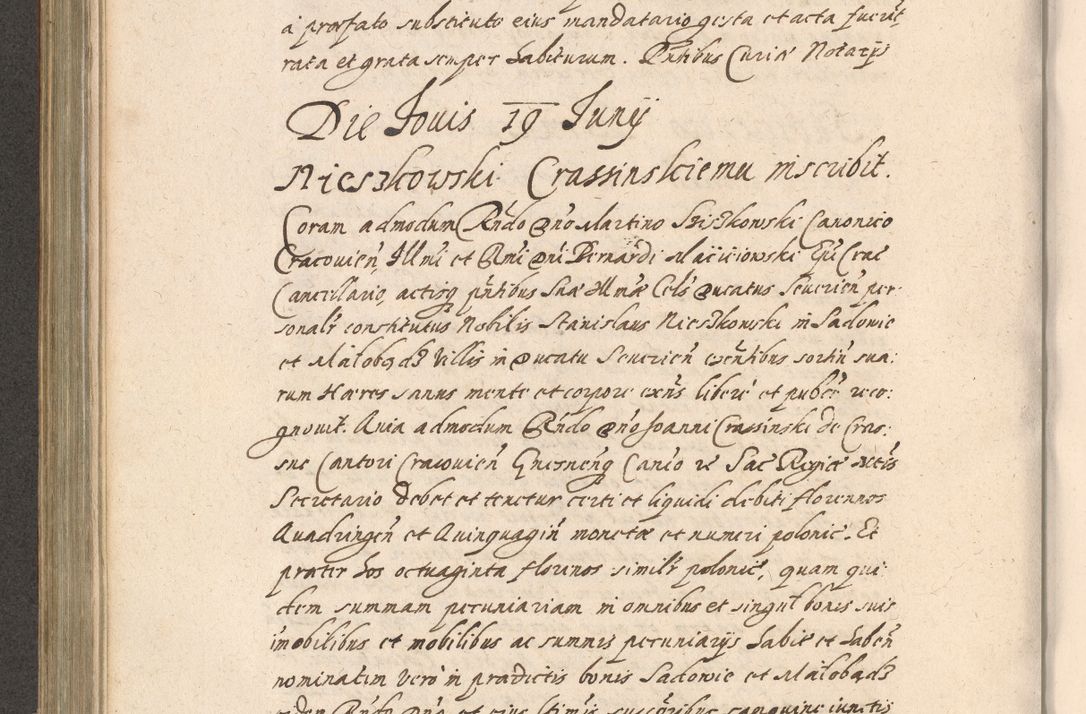 a præfato substituto eius mandatario gesta et acta fuerūt
rata et grata semper habiturum. Pn̄tibus Curiæ Notarÿs
Die Jouis 19 Junÿ
Nieszkowski Crassinskiemu inscribit.
Coram admodum Rn̄do Dn̄o Martino Szyszkowski Canonico
Cracouien̄, Illm̄i et Rm̄i Dn̄i Bernardi Macieiowski Ep̄i Crac
Cancellario, actisq̄ pn̄tibus Suæ Illm̄æ Cels̄ Ducatus Seuerien̄ per
sonalr̄ constitutus Nobilis Stanislaus Nieszkowski in Sadowie
et Małobądz Villis in Ducatu Seuerien̄ existen̄tibus sortiū sua:
rum Hæres sanus mente et corpore exn̄s liberè et publicè reco:
gnouit. Quia admodum Rn̄do Dn̄o Joanni Crassinski de Cras:
sne Cantori Cracouien̄ Gnesnen̄q̄ Can̄co ac Sac Regiæ Mtt̄is
Secretario debet et tenetur certi et liquidi debiti florennos
Quadringen̄ et Quinquagin̄ monetæ et numeri polonic̄. Et
præter hos octuaginta florenos similr̄ polonic̄, quam qui:
dem summam pecuniariam in omnibus et singul̄ bonis suis
imobilibus et mobilibus ac summis pecuniarÿs habit̄ et haben̄
nominatim verò in prædictis bonis Sadowie et Małobądz
eidem Rn̄do Dn̄o et eius ltīmis succōribus sanguine iunctis